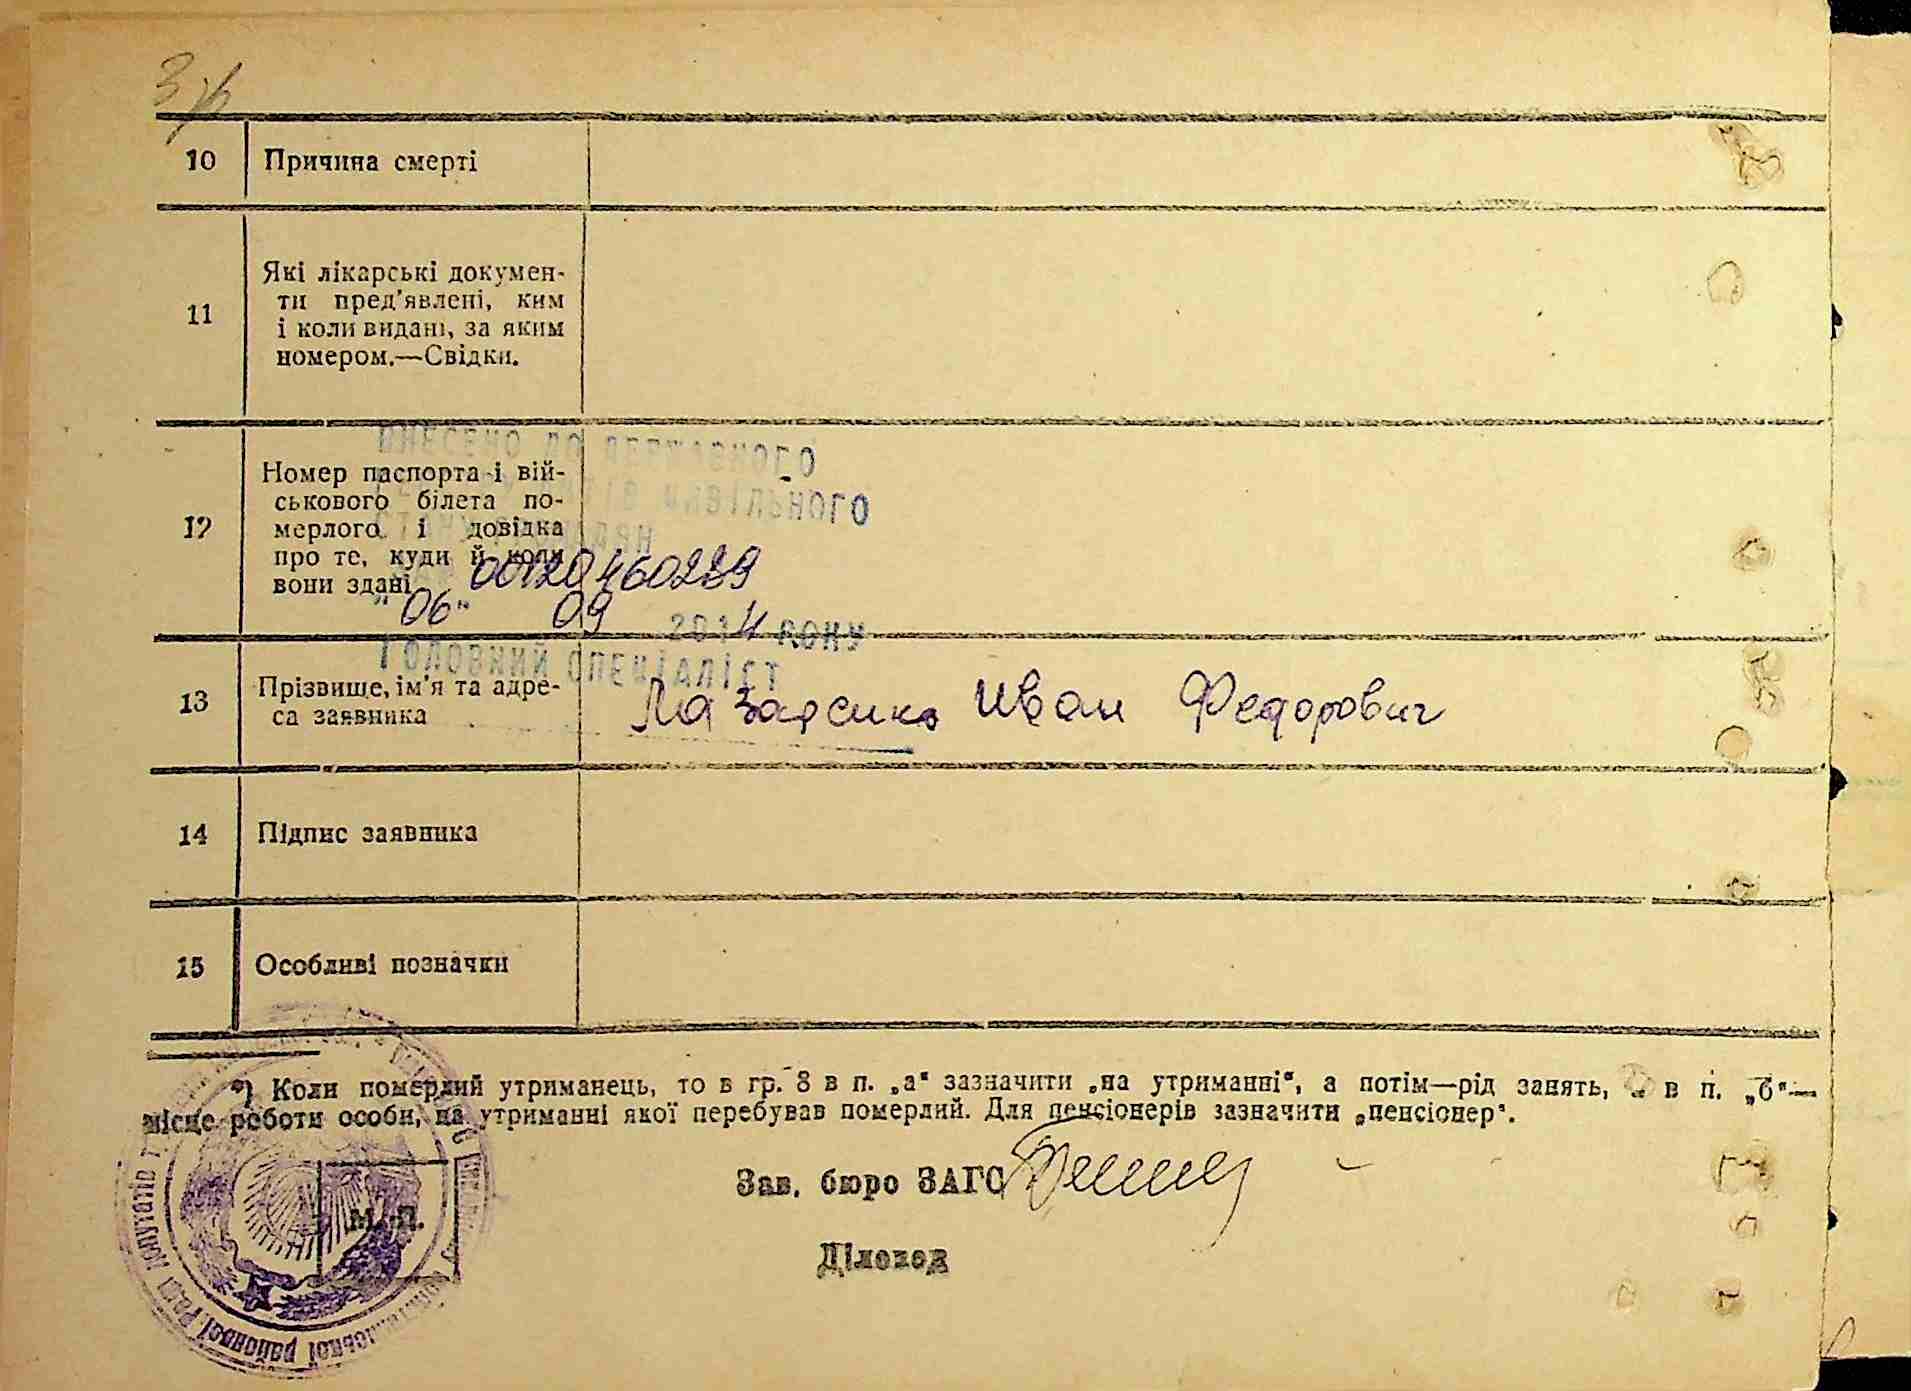 10 Причина смерті
11 Які лікарські докумен-
ти пред'явлені, ким
і коли видані, за яким
номером.—Свідки.
внесено до державного
12 Номер паспорта і вій-
цивільного
ськового білета по-
мерлого і довідка
громадян
про те, куди й коли
00120460239
вони здані
"06" 09 2014 року
Головний спеціаліст
13 Прізвище, ім'я та адре-
са заявника
Иван Федорович
14 Підпис заявника
15 Особливі позначки
*) Коли померлий утриманець, то в гр. 8 в п. „а" зазначити „на утриманні", а потім—рід занять, в п. „б"—
місце роботи особи, на утриманні якої перебував померлий. Для пенсіонерів зазначити „пенсіонер".
Зав. бюро ЗАГС
М. П.
Діловод
районної Ради депутатів